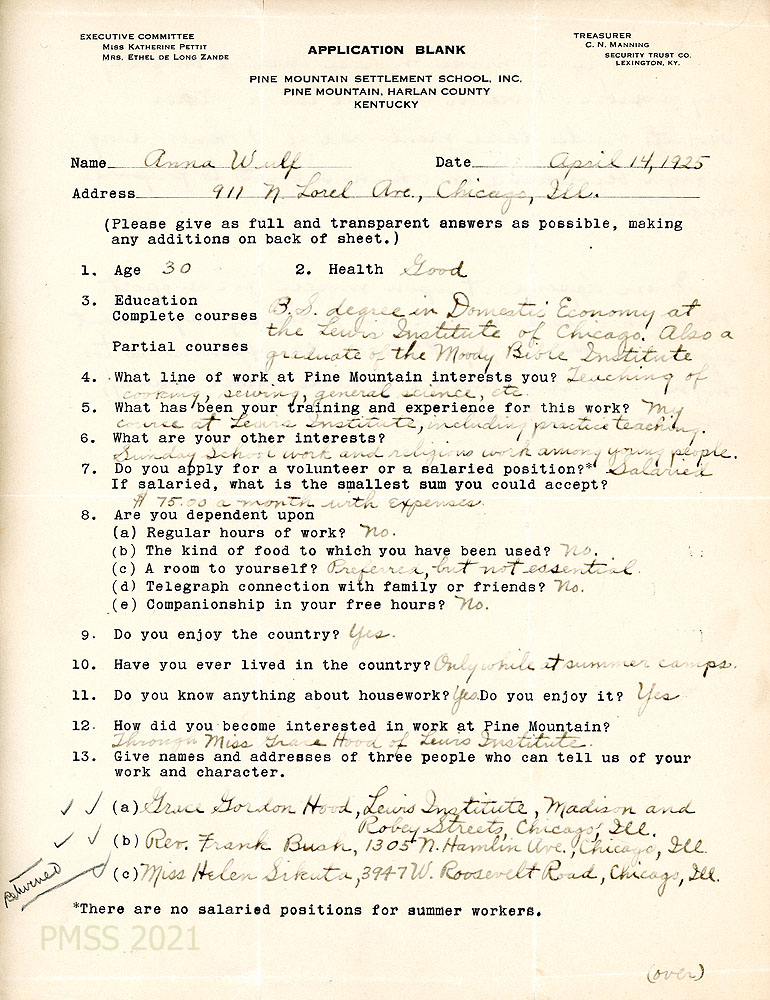 EXECUTIVE COMMITTEE
MISS KATHERINE PETTIT
MRS. ETHEL DE LONG ZANDE
APPLICATION BLANK
TREASURER
C. N. MANNING
SECURITY TRUST CO.
LEXINGTON, KY.
PINE MOUNTAIN SETTLEMENT SCHOOL, INC.
PINE MOUNTAIN, HARLAN COUNTY
KENTUCKY
Name Anna Wulf Date April 14, 1925
Address 911 N Lorel Ave., Chicago, Ill.
(Please give as full and transparent answers as possible, making
any additions on back of sheet.)
1. Age 30 2. Health Good
3. Education
Complete courses B.S. degree in Domestic Economy at
the Lewis Institute of Chicago. Also a
Partial courses graduate of the Moody Bible Institute
4. What line of work at Pine Mountain interests you? Teaching of
cooking, sewing, general science, etc.
5. What has been your training and experience for this work? My
course at Lewis Institute, including practice teaching.
6. What are your other interests?
Sunday School work and religious work among young people.
7. Do you apply for a volunteer or a salaried position?* Salaried
If salaried, what is the smallest sum you could accept?
$75.00 a month with expenses.
8. Are you dependent upon
(a) Regular hours of work? No.
(b) The kind of food to which you have been used? No.
(c) A room to yourself? Preferred, but not essential.
(d) Telegraph connection with family or friends? No.
(e) Companionship in your free hours? No.
9. Do you enjoy the country? Yes.
10. Have you ever lived in the country? Only while at summer camps.
11. Do you know anything about housework? Yes Do you enjoy it? Yes
12. How did you become interested in work at Pine Mountain?
Through Miss Grace Hood of Lewis Institute.
13. Give names and addresses of three people who can tell us of your
work and character.
(a) Grace Gordon Hood, Lewis Institute, Madison and
Robey Streets, Chicago, Ill.
(b) Rev. Frank Bush, 1305 N. Hamlin Ave., Chicago, Ill.
Returned
(c) Miss Helen Sikuta, 3947 W. Roosevelt Road, Chicago, Ill.
*There are no salaried positions for summer workers.
PMSS 2021
(over)